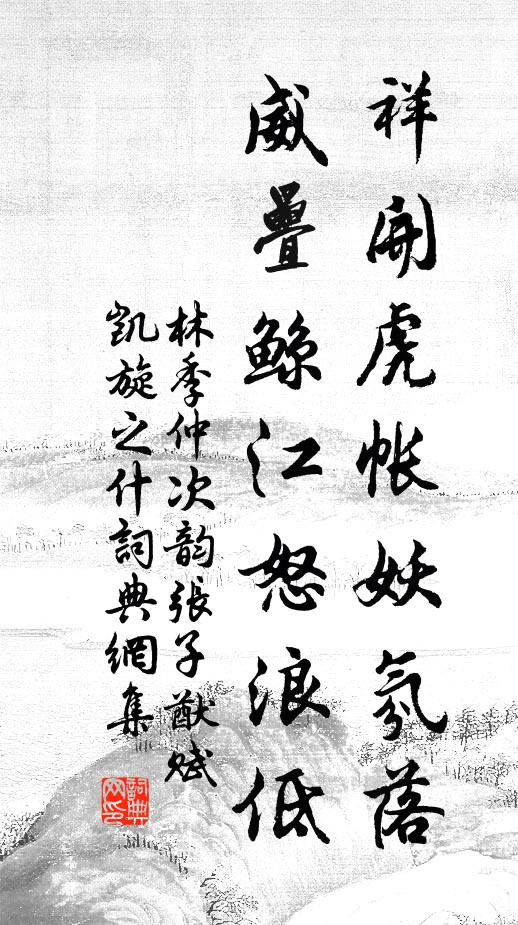 祥開虎帳妖氛落
威疊鯨江怒浪低
林季仲次韵張子猷賦
凱旋之什詞典網集
詞典
网印